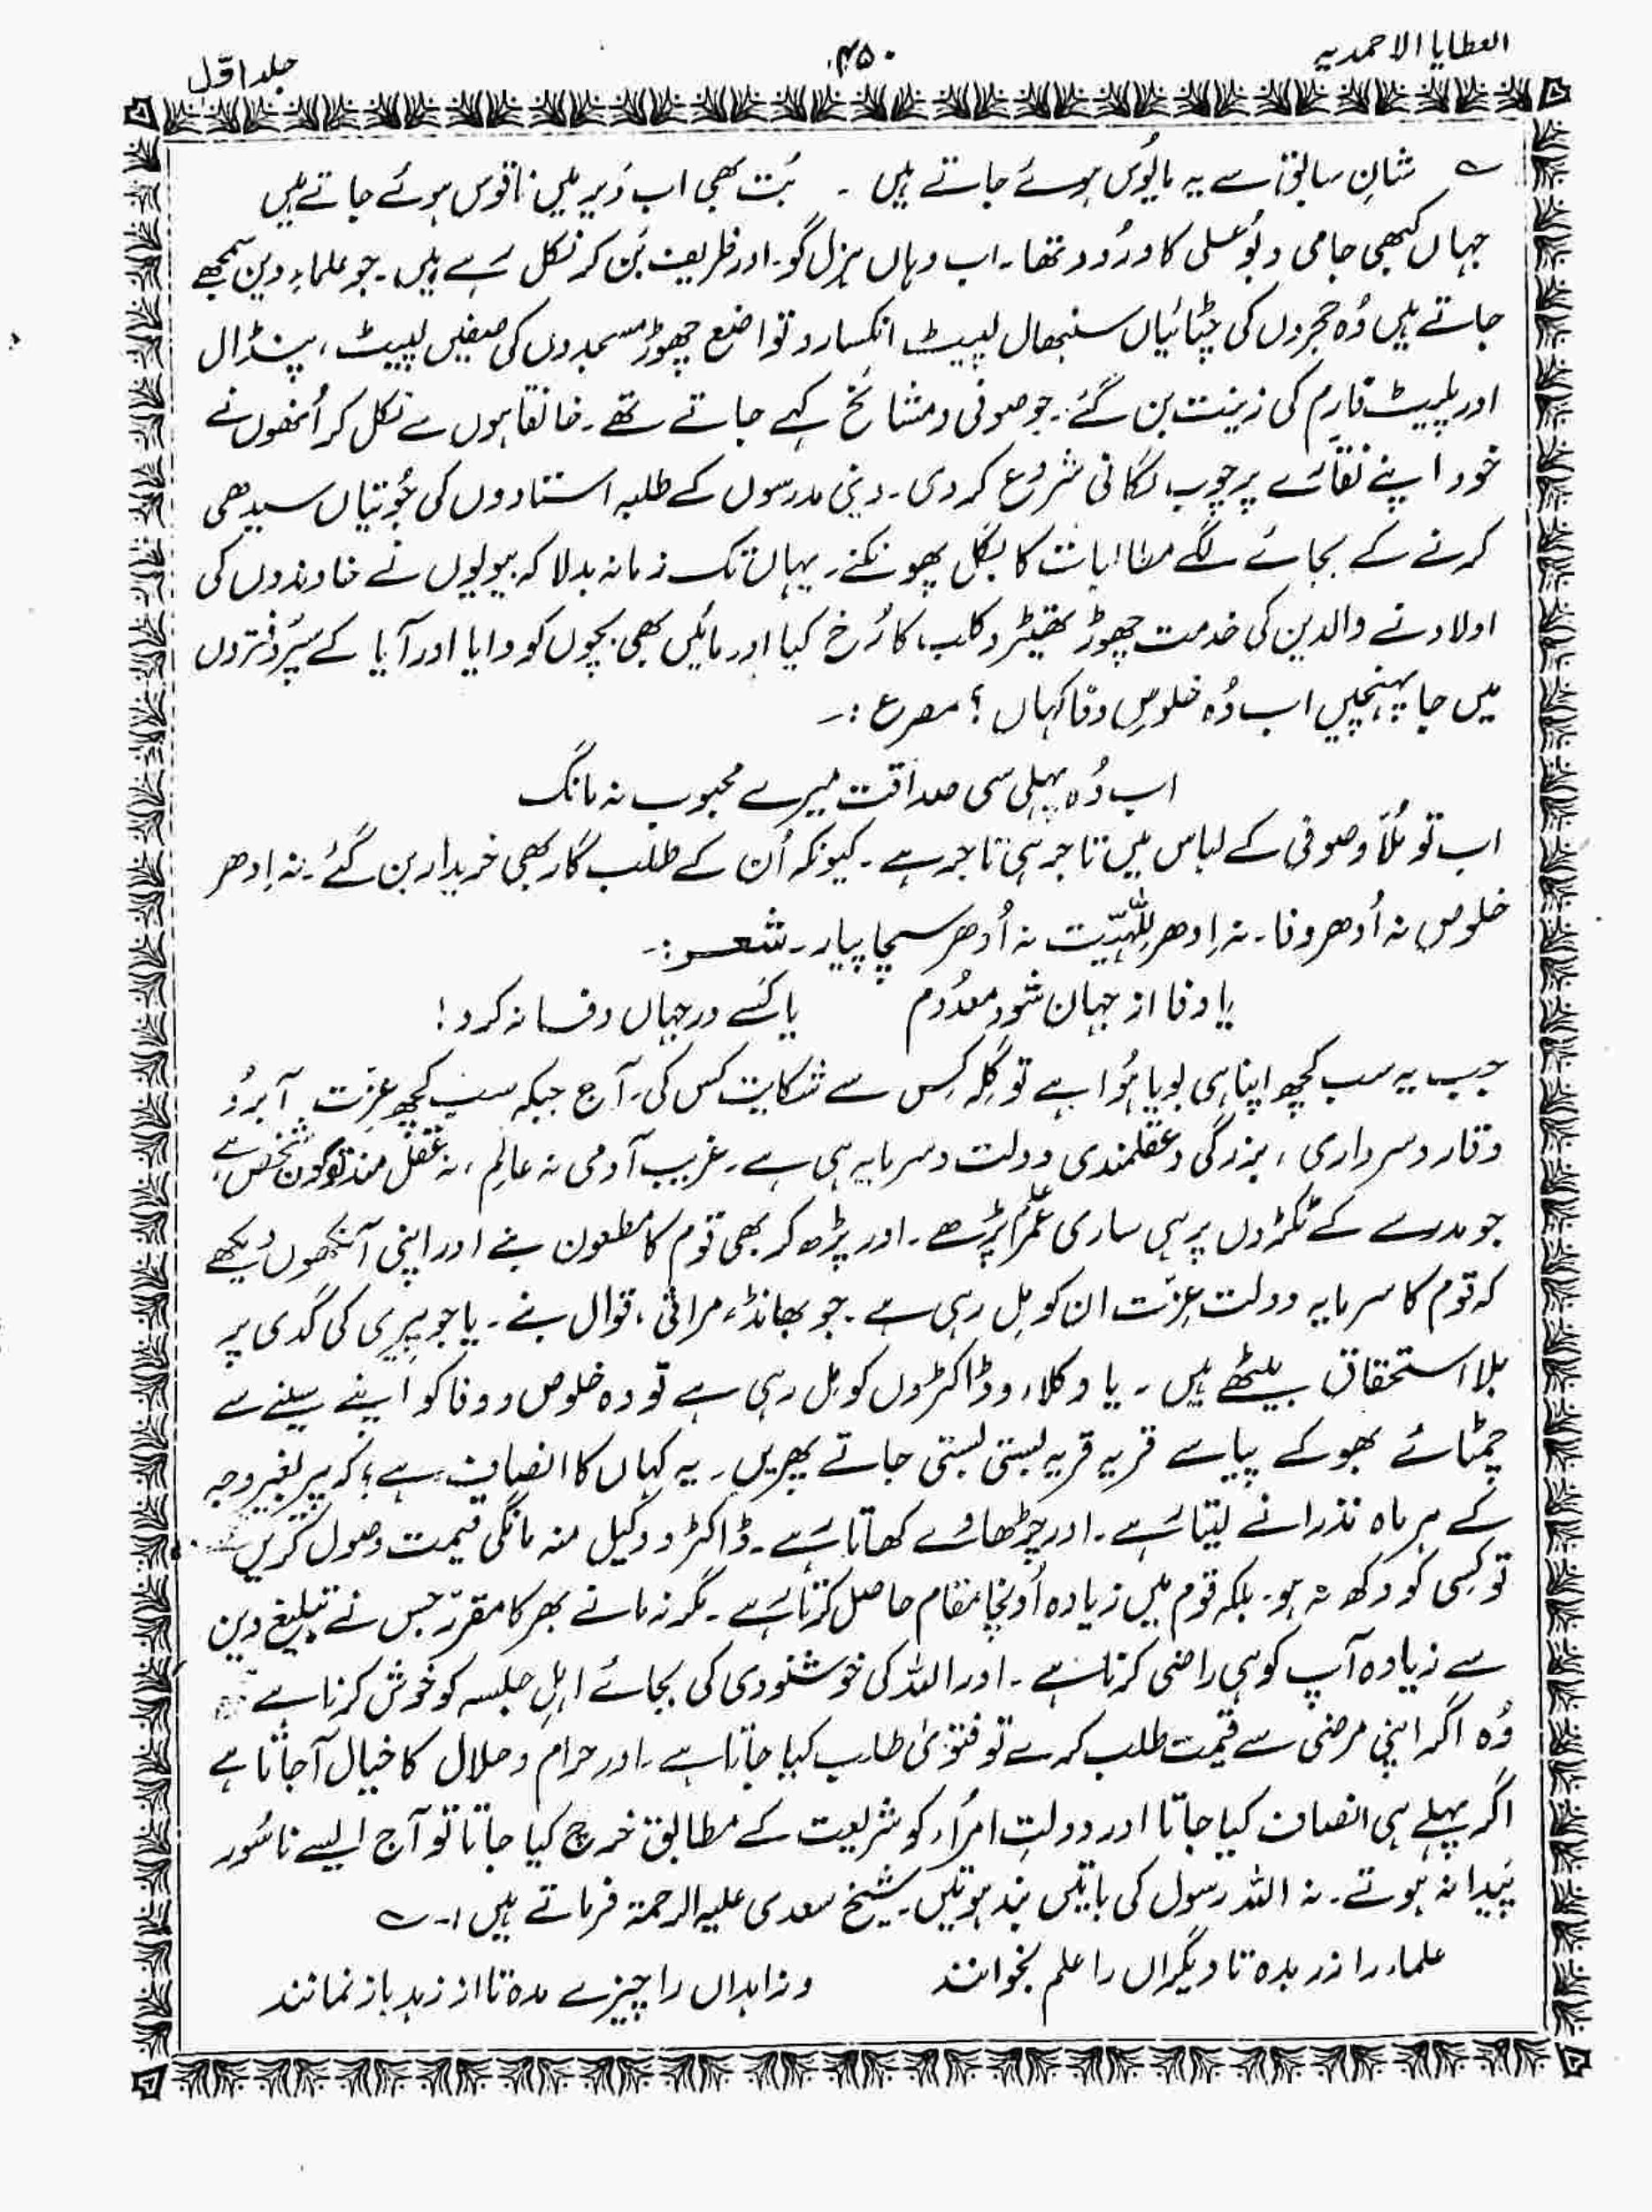 العطایا الاحمدیہ
۴۵۰
جلد اوّل
شانِ سابق سے یہ مایُوس ہوئے جاتے ہیں ۔ بُت بھی اب دَیر میں ناقوس ہوئے جاتے ہیں
جہاں کبھی جامی و بُو علی کا ورُود تھا۔ اب وہاں ہزل گو۔ اور ظریف بَن کر نکل رہے ہیں۔ جو علماءِ دین سمجھے
جاتے ہیں وُہ حجروں کی چٹائیاں سنبھال لپیٹ انکسار و تواضع چھوڑ مسجدوں کی صفیں لپیٹ، پنڈال
اور پلیٹ فارم کی زینت بن گئے۔ جو صوفی و مشائخ کہے جاتے تھے۔ خانقاہوں سے نکل کر اُنھوں نے
خود اپنے نقّارے پر چوب لگانی شروع کر دی۔ دینی مدرسوں کے طلبہ استادوں کی جُوتیاں سیدھی
کرنے کے بجائے لگے مطالبات کا بگل پھونکنے۔ یہاں تک زمانہ بدلا کہ بیویوں نے خاوندوں کی
اولاد نے والدین کی خدمت چھوڑ تھیٹر و کلب کا رُخ کیا اور مائیں بھی بچوں کو دایا اور آیا کے سپرد دفتروں
میں جا پہنچیں اب وُہ خلوص وفا کہاں ؟ مصرع :۔
اب وُہ پہلی سی صداقت میرے محبوب نہ مانگ
اب تو مُلّا و صوفی کے لباس میں تاجر ہی تاجر ہے۔ کیونکہ اُن کے طلب گار بھی خریدار بن گئے۔ نہ اِدھر
خلوص نہ اُدھر وفا۔ نہ اِدھر للّٰہیّت نہ اُدھر سچا پیار۔ شعر :۔
یا وفا از جہان شود معدُوم یا کسے در جہاں وفا نہ کرد !
جب یہ سب کچھ اپنا ہی بویا ہُوا ہے تو گِلہ کِس سے شکایت کس کی۔ آج جبکہ سب کچھ عزت۔ آبرُو
وقار و سرداری ، بزرگی و عقلمندی دولت و سرمایہ ہی ہے۔ غریب آدمی نہ عالِم ، نہ عقل مند تو کون شخص ہے
جو مدرسے کے ٹکڑوں پر ہی ساری عمر علم پڑھے۔ اور پڑھ کر بھی قوم کا مطعون بنے اور اپنی آنکھوں دیکھے
کہ قوم کا سرمایہ دولت عِزت ان کو مِل رہی ہے۔ جو بھانڈ، مراثی ، قوال بنے۔ یا جو پیری کی گدی پر
بلا استحقاق بیٹھے ہیں ۔ یا وکلاء و ڈاکٹروں کو مِل رہی ہے تو وہ خلوص و وفا کو اپنے سینے سے
چمٹائے بھوکے پیاسے قریہ قریہ بستی بستی جاتے پھریں۔ یہ کہاں کا انصاف ہے؛ کہ پیر بغیر وجہ
کے ہر ماہ نذرانے لیتا ہے۔ اور چڑھاوے کھاتا ہے۔ ڈاکٹر و وکیل منہ مانگی قیمت وصول کریں
تو کِسی کو دکھ نہ ہو۔ بلکہ قوم میں زیادہ اُونچا مقام حاصل کرتا ہے۔ مگر زمانے بھر کا مقرّر جس نے تبلیغِ دین
سے زیادہ آپ کو ہی راضی کرنا ہے۔ اور اللہ کی خوشنودی کی بجائے اہلِ جلسہ کو خوش کرنا ہے
وُہ اگر اپنی مرضی سے قیمت طلب کرے تو فتوٰی طلب کیا جاتا ہے۔ اور حرام و حلال کا خیال آجاتا ہے
اگر پہلے ہی انصاف کیا جاتا اور دولتِ امرُاء کو شریعت کے مطابق خرچ کیا جاتا تو آج ایسے ناسُور
پَیدا نہ ہوتے۔ نہ اللہ رسول کی باتیں بند ہوتیں۔ شیخ سعدی علیہ الرحمۃ فرماتے ہیں :۔
علماء را زر بدہ تا دیگراں را علم بخوانند و زاہداں را چیزے مدہ تا از زہد باز نمانند